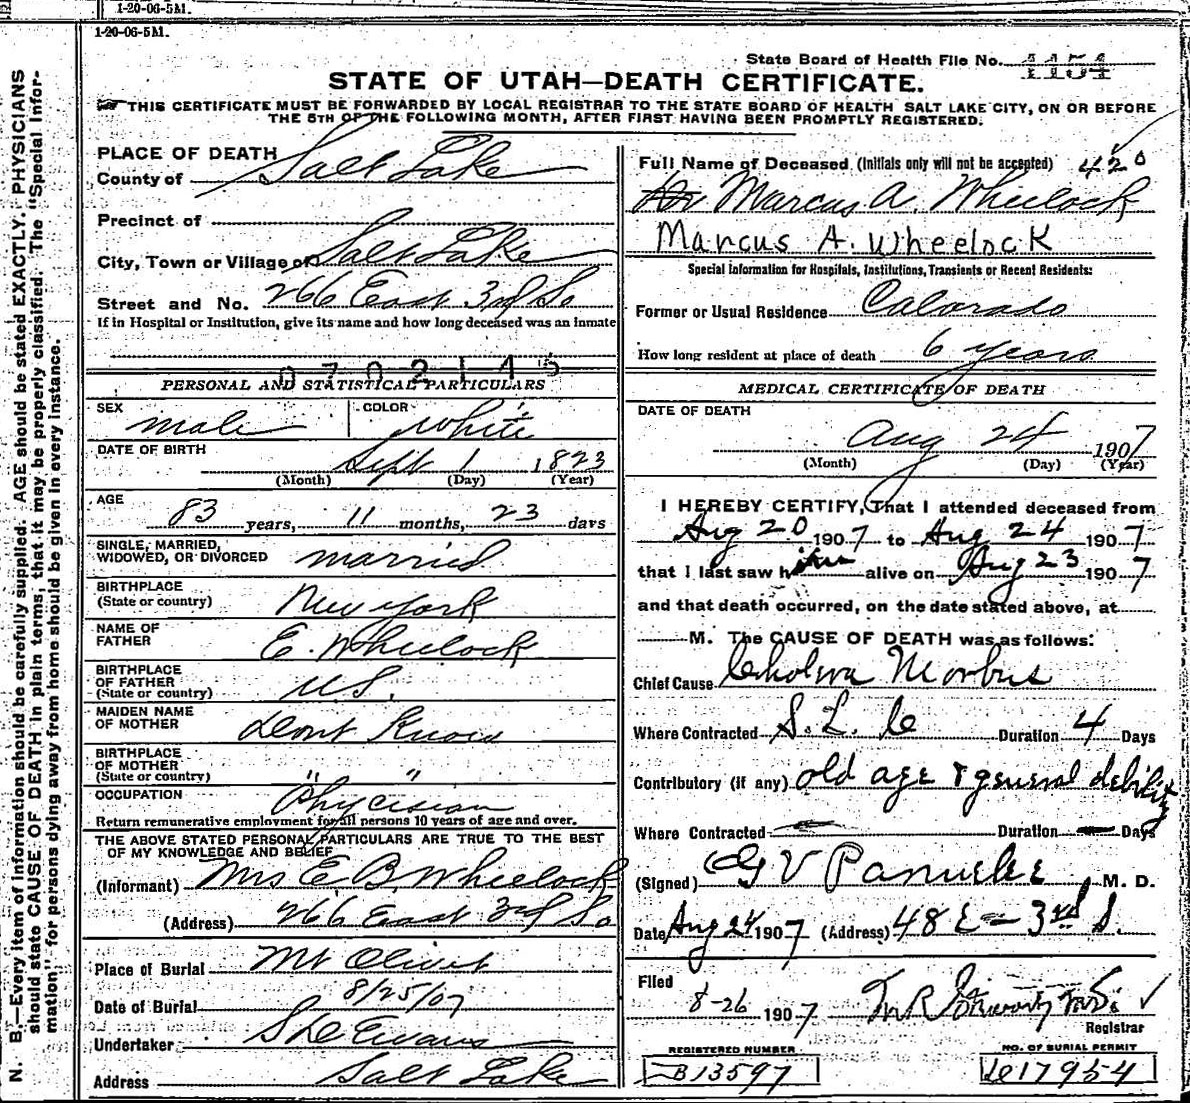 1-20-06-5M.
1-20-06-5M.
State Board of Health File No. 1154
STATE OF UTAH—DEATH CERTIFICATE.
THIS CERTIFICATE MUST BE FORWARDED BY LOCAL REGISTRAR TO THE STATE BOARD OF HEALTH SALT LAKE CITY, ON OR BEFORE
THE 5TH OF THE FOLLOWING MONTH, AFTER FIRST HAVING BEEN PROMPTLY REGISTERED.
N. B.—Every item of information should be carefully supplied. AGE should be stated EXACTLY. PHYSICIANS
should state CAUSE OF DEATH in plain terms, that it may be properly classified. The "Special Infor-
mation" for persons dying away from home should be given in every instance.
PLACE OF DEATH
County of Salt Lake
Precinct of
City, Town or Village of Salt Lake
Street and No. 266 East 3rd So
If in Hospital or Institution, give its name and how long deceased was an inmate
0702145
PERSONAL AND STATISTICAL PARTICULARS
SEX male COLOR white
DATE OF BIRTH
Sept 1 1823
(Month) (Day) (Year)
AGE
83 years, 11 months, 23 days
SINGLE, MARRIED,
WIDOWED, OR DIVORCED married
BIRTHPLACE
(State or country) New York
NAME OF
FATHER E. Wheelock
BIRTHPLACE
OF FATHER
(State or country) U.S.
MAIDEN NAME
OF MOTHER Dont Know
BIRTHPLACE
OF MOTHER
(State or country) " "
OCCUPATION Phycisian
Return remunerative employment for all persons 10 years of age and over.
THE ABOVE STATED PERSONAL PARTICULARS ARE TRUE TO THE BEST
OF MY KNOWLEDGE AND BELIEF
(Informant) Mrs E. B. Wheelock
(Address) 266 East 3rd So
Place of Burial Mt Olivet
Date of Burial 8/25/07
Undertaker Evans
Address Salt Lake
Full Name of Deceased (Initials only will not be accepted) 420
Dr Marcus A. Wheelock
Marcus A. Wheelock
Special Information for Hospitals, Institutions, Transients or Recent Residents:
Former or Usual Residence Calorado
How long resident at place of death 6 years
MEDICAL CERTIFICATE OF DEATH
DATE OF DEATH
Aug 24 1907
(Month) (Day) (Year)
I HEREBY CERTIFY, That I attended deceased from
Aug 20 1907 to Aug 24 1907
that I last saw him alive on Aug 23 1907
and that death occurred, on the date stated above, at
M. The CAUSE OF DEATH was as follows:
Chief Cause Cholera Morbus
Where Contracted S. L. C Duration 4 Days
Contributory (if any) old age & general debility
Where Contracted — Duration — Days
(Signed) G V Parmelee M. D.
Date Aug 24 1907 (Address) 48 E – 3rd S.
Filed
8-26 1907
Registrar
REGISTERED NUMBER NO. OF BURIAL PERMIT
B13597 C17954